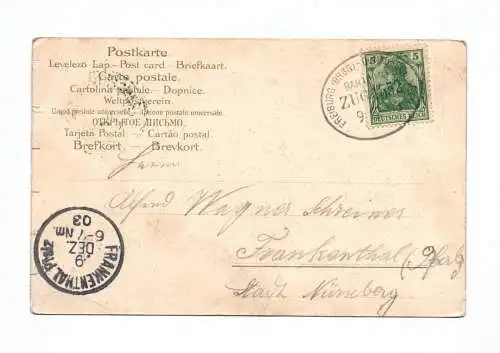 Postkarte
Levelező-Lap. - Post card - Briefkaart.
Carte postale.
Cartolina postale. - Dopnice.
Weltpostverein.
Union postale universelle - Unione postale universale.
ОТКРЫТОЕ ПИСЬМО.
Tarjeta Postal. - Cartão postal.
Brefkort. - Brevkort.
5 5
DEUTSCHES REICH
FREIBURG (BRSG)
BAH
ZUG
9
Herrn
Alfred Wagner Schreiner
Frankenthal (Pfalz)
Stadt Nürnberg
FRANKENTHAL PFALZ
9. DEZ
6-7 Nm.
03